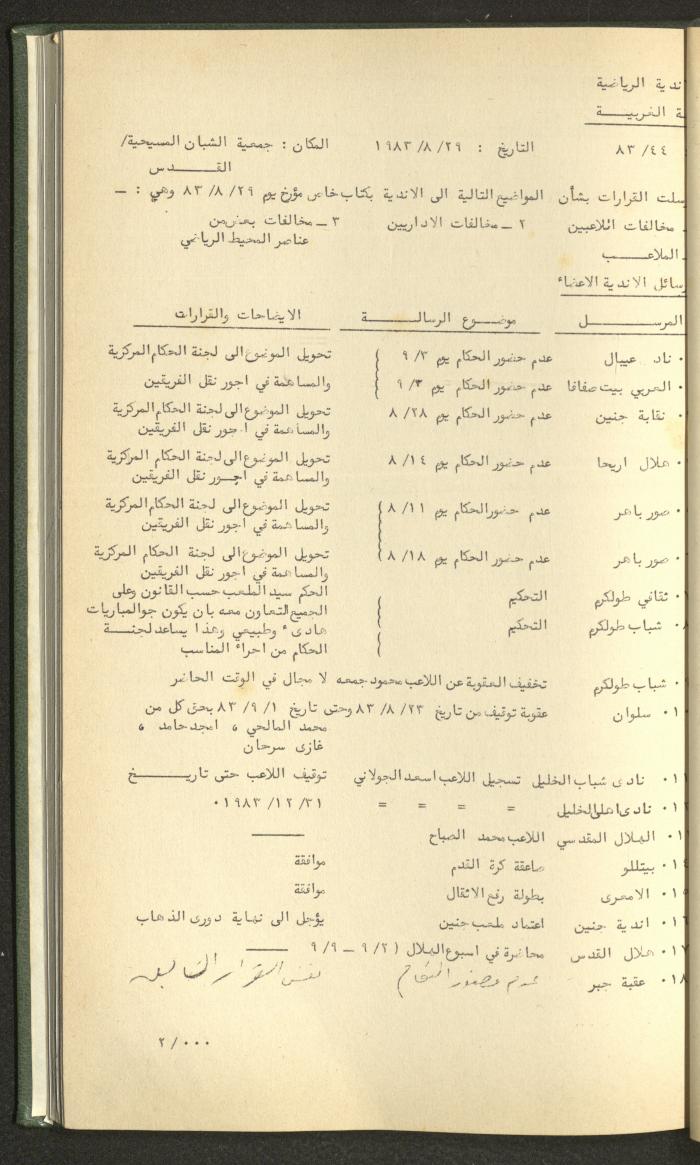 ندية الرياضية
ة الغربيـــة
٨٣/٤٤ التاريخ : ١٩٨٣/٨/٢٩ المكان : جمعية الشبان المسيحية/
القـــدس
سلت القرارات بشأن المواضيع التالية الى الاندية بكتاب خاص مؤرخ يوم ٨٣/٨/٢٩ وهي : ــ
مخالفات اللاعبين ٢ ــ مخالفات الاداريين ٣ ــ مخالفات بعض من
عناصر المحيط الرياضي
الملاعـــب
سائل الاندية الاعضاء
المرســـل موضـــوع الرسالـــة الايضاحات والقرارات
ناد عيبال عدم حضور الحكام يوم ٩/٣ تحويل الموضوع الى لجنة الحكام المركزية
العربي بيت صفافا عدم حضور الحكام يوم ٩/٣ والمساهمة في اجور نقل الفريقين
نقابة جنين عدم حضور الحكام يوم ٨/٢٨ تحويل الموضوع الى لجنة الحكام المركزية
والمساهمة في اجور نقل الفريقين
هلال اريحا عدم حضور الحكام يوم ٨/١٤ تحويل الموضوع الى لجنة الحكام المركزية
والمساهمة في اجــور نقل الفريقين
صور باهر عدم حضور الحكام يوم ٨/١١ تحويل الموضوع الى لجنة الحكام المركزية
والمساهمة في اجور نقل الفريقين
صور باهر عدم حضور الحكام يوم ٨/١٨ تحويل الموضوع الى لجنة الحكام المركزية
والمساهمة في اجور نقل الفريقين
ثقافي طولكرم التحكيم الحكم سيد الملعب حسب القانون وعلى
الجميع التعاون معه بان يكون جو المباريات
شباب طولكرم التحكيم هادىء وطبيعي وهذا يساعد لجنـــة
الحكام من اجراء المناسب
شباب طولكرم تخفيف العقوبة عن اللاعب محمود جمعه لا مجال في الوقت الحاضر
١٠٠ سلوان عقوبة توقيف من تاريخ ٨٣/٨/٢٣ وحتى تاريخ ٨٣/٩/١ بحق كل من
محمد المالحي ، امجد حامد ،
غازى سرحان
١١٠ نادى شباب الخليل تسجيل اللاعب اسعد الجولاني توقيف اللاعب حتى تاريـــخ
نادى اهلي الخليل = = = = ١٩٨٣/١٢/٣١٠
الهلال المقدسي اللاعب محمد الصباح ــــــ
١٤٠ بيتللو صاعقة كرة القدم موافقة
الامعرى بطولة رفع الاثقال موافقة
١٦٠ اندية جنين اعتماد ملعب جنين يؤجل الى نهاية دورى الذهاب
١٧٠ هلال القدس محاضرة في اسبوع الهلال (٩/٢ ــ ٩/٩ ــــــ
١٨٠ عقبة جبر عدم حضور الحكام نفس القرار السابق
٢/٠٠٠